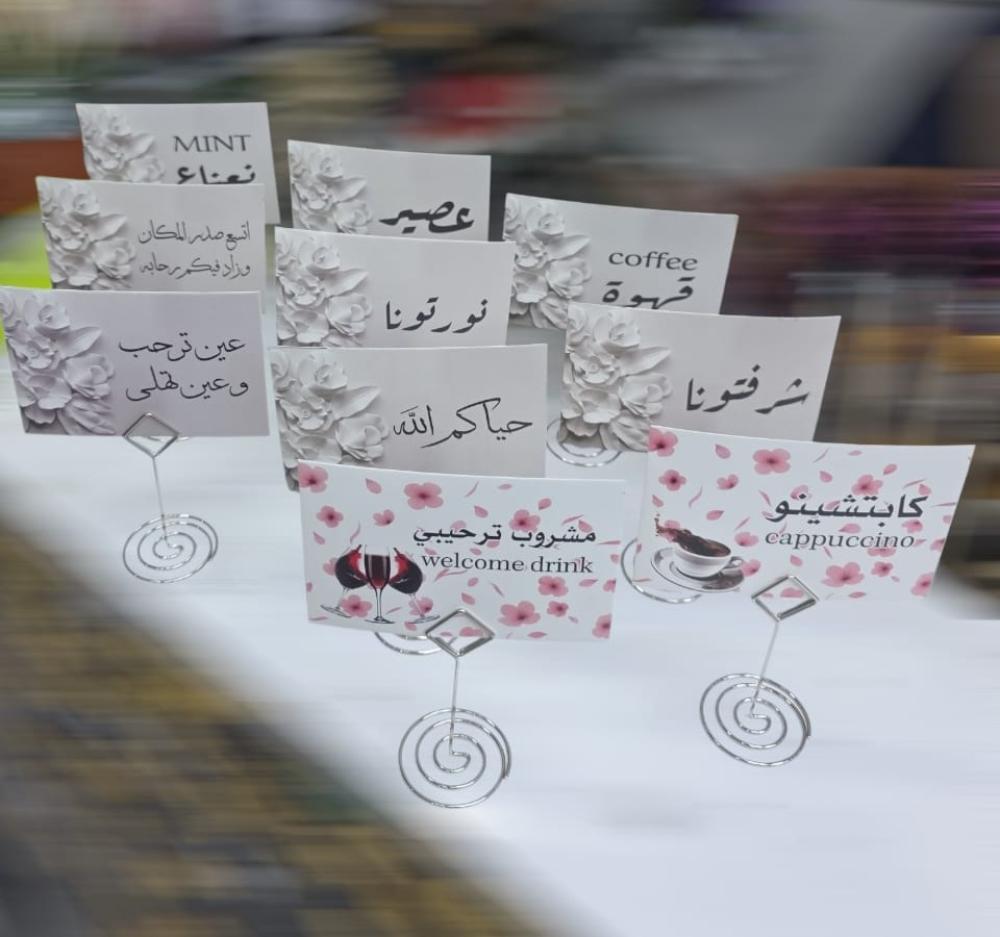 MINT
نعناع
عصير
coffee
قهوة
اتسع صدر المكان
وزاد فيكم رحابه
نورتونا
شرفتونا
عين ترحب
وعين تهلي
حياكم الله
مشروب ترحيبي
welcome drink
كابتشينو
cappuccino